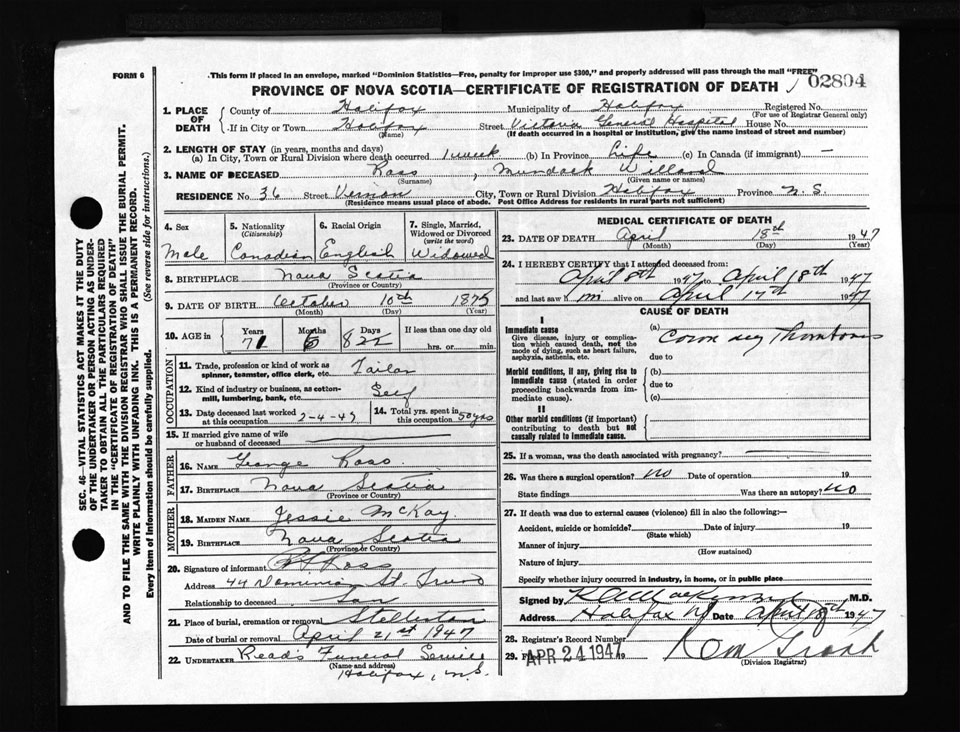 FORM 6
This form if placed in an envelope, marked "Dominion Statistics—Free, penalty for improper use $300," and properly addressed will pass through the mail "FREE"
02804
PROVINCE OF NOVA SCOTIA—CERTIFICATE OF REGISTRATION OF DEATH
1. PLACE OF DEATH County of Halifax Municipality of Halifax Registered No.
(For use of Registrar General only)
If in City or Town Halifax Street Victoria General Hospital House No.
(Name) (If death occurred in a hospital or institution, give the name instead of street and number)
2. LENGTH OF STAY (in years, months and days)
(a) In City, Town or Rural Division where death occurred 1 week (b) In Province Life (c) In Canada (if immigrant) —
3. NAME OF DECEASED Ross, Murdock Willard
(Surname) (Given name or names)
RESIDENCE No. 36 Street Vernon City, Town or Rural Division Halifax Province N. S.
(Residence means usual place of abode. Post Office Address for residents in rural parts not sufficient)
4. Sex Male
5. Nationality (Citizenship) Canadian
6. Racial Origin English
7. Single, Married, Widowed or Divorced (write the word) Widowed
8. BIRTHPLACE Nova Scotia
(Province or Country)
9. DATE OF BIRTH October 10th 1875
(Month) (Day) (Year)
10. AGE in Years 71 Months 6 Days 8 If less than one day old
hrs. or min.
OCCUPATION
11. Trade, profession or kind of work as spinner, teamster, office clerk, etc. Tailor
12. Kind of industry or business, as cotton-mill, lumbering, bank, etc. Self
13. Date deceased last worked at this occupation 2-4-47 14. Total yrs. spent in this occupation 50 yrs
15. If married give name of wife or husband of deceased
FATHER
16. NAME George Ross
17. BIRTHPLACE Nova Scotia
(Province or Country)
MOTHER
18. MAIDEN NAME Jessie McKay
19. BIRTHPLACE Nova Scotia
(Province or Country)
20. Signature of informant Ross
Address 44 Dominion St. Truro
Relationship to deceased Son
21. Place of burial, cremation or removal Stellarton
Date of burial or removal April 21st 1947
22. UNDERTAKER Read's Funeral Service
(Name and address)
Halifax, N.S.
MEDICAL CERTIFICATE OF DEATH
23. DATE OF DEATH April 18th 1947
(Month) (Day) (Year)
24. I HEREBY CERTIFY that I attended deceased from:
April 8th 1947 to April 18th 1947
and last saw him alive on April 17th 1947
CAUSE OF DEATH
I
Immediate cause
Give disease, injury or complication which caused death, not the mode of dying, such as heart failure, asphyxia, asthenia, etc.
(a) Coronary Thrombosis
due to
Morbid conditions, if any, giving rise to immediate cause (stated in order proceeding backwards from immediate cause).
(b)
due to
(c)
II
Other morbid conditions (if important) contributing to death but not causally related to immediate cause.
25. If a woman, was the death associated with pregnancy?
26. Was there a surgical operation? no Date of operation 19
State findings Was there an autopsy? no
27. If death was due to external causes (violence) fill in also the following:—
Accident, suicide or homicide? Date of injury 19
(State which)
Manner of injury
(How sustained)
Nature of injury
Specify whether injury occurred in industry, in home, or in public place
Signed by M.D.
Address Halifax Date April 18th 1947
28. Registrar's Record Number
29. APR 24 1947 19
(Division Registrar)
SEC. 46—VITAL STATISTICS ACT MAKES IT THE DUTY
OF THE UNDERTAKER OR PERSON ACTING AS UNDER-
TAKER TO OBTAIN ALL THE PARTICULARS REQUIRED
IN THE "CERTIFICATE OF REGISTRATION OF DEATH"
AND TO FILE THE SAME WITH THE DIVISION REGISTRAR WHO SHALL ISSUE THE BURIAL PERMIT.
WRITE PLAINLY WITH UNFADING INK. THIS IS A PERMANENT RECORD.
Every item of information should be carefully supplied. (See reverse side for instructions.)